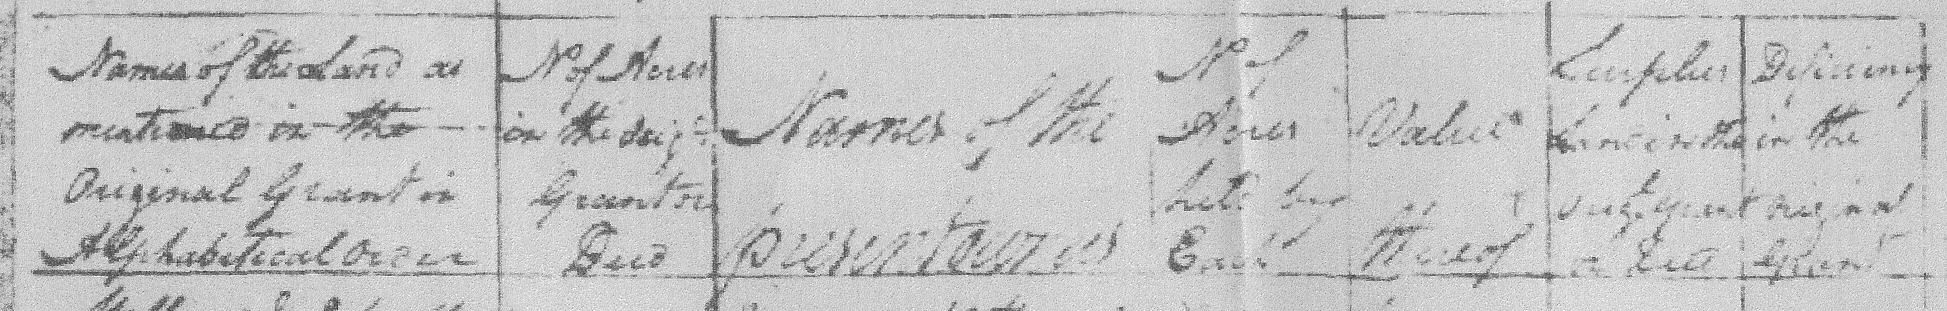 Names of the Land as
mentioned in the
Original Grant in
Alphabetical order
No of Acres
in the Orig.
Grant or
Deed
Names of the
present owners
No of
Acres
held by
Each
Value
thereof
Surplus
Land in the
orig. grant
or Deed
Deficiency
in the
original
Grant